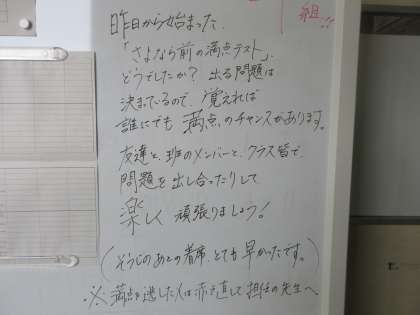 組!!
昨日から始まった、
「さよなら前の満点テスト」、
どうでしたか? 出る問題は
決まているので、覚えれば
誰にでも 満点のチャンスがあります。
友達と、班のメンバーと、クラス皆で、
問題を出し合ったりして
楽しく 頑張りましょう!
(そうじのあとの着席、とても早かったです。)
※ 満点を逃した人は赤で直して担任の先生へ